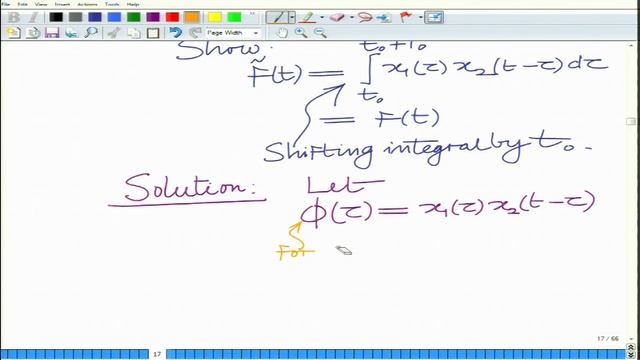 File Edit View Insert Actions Tools Help
Page Width
Show:
F̃(t) = ∫_{t₀}^{t₀+T₀} x₁(τ) x₂(t−τ) dτ
= F(t)
Shifting integral by t₀.
Solution: Let
φ(τ) = x₁(τ) x₂(t−τ)
For
17
17 / 66